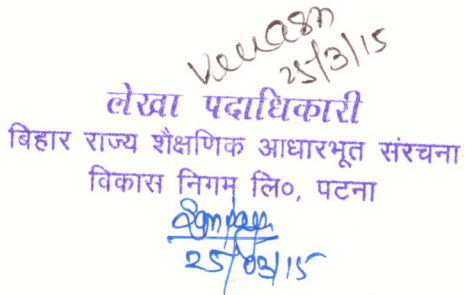 25/3/15
लेखा पदाधिकारी
बिहार राज्य शैक्षणिक आधारभूत संरचना
विकास निगम लि०, पटना
25/03/15